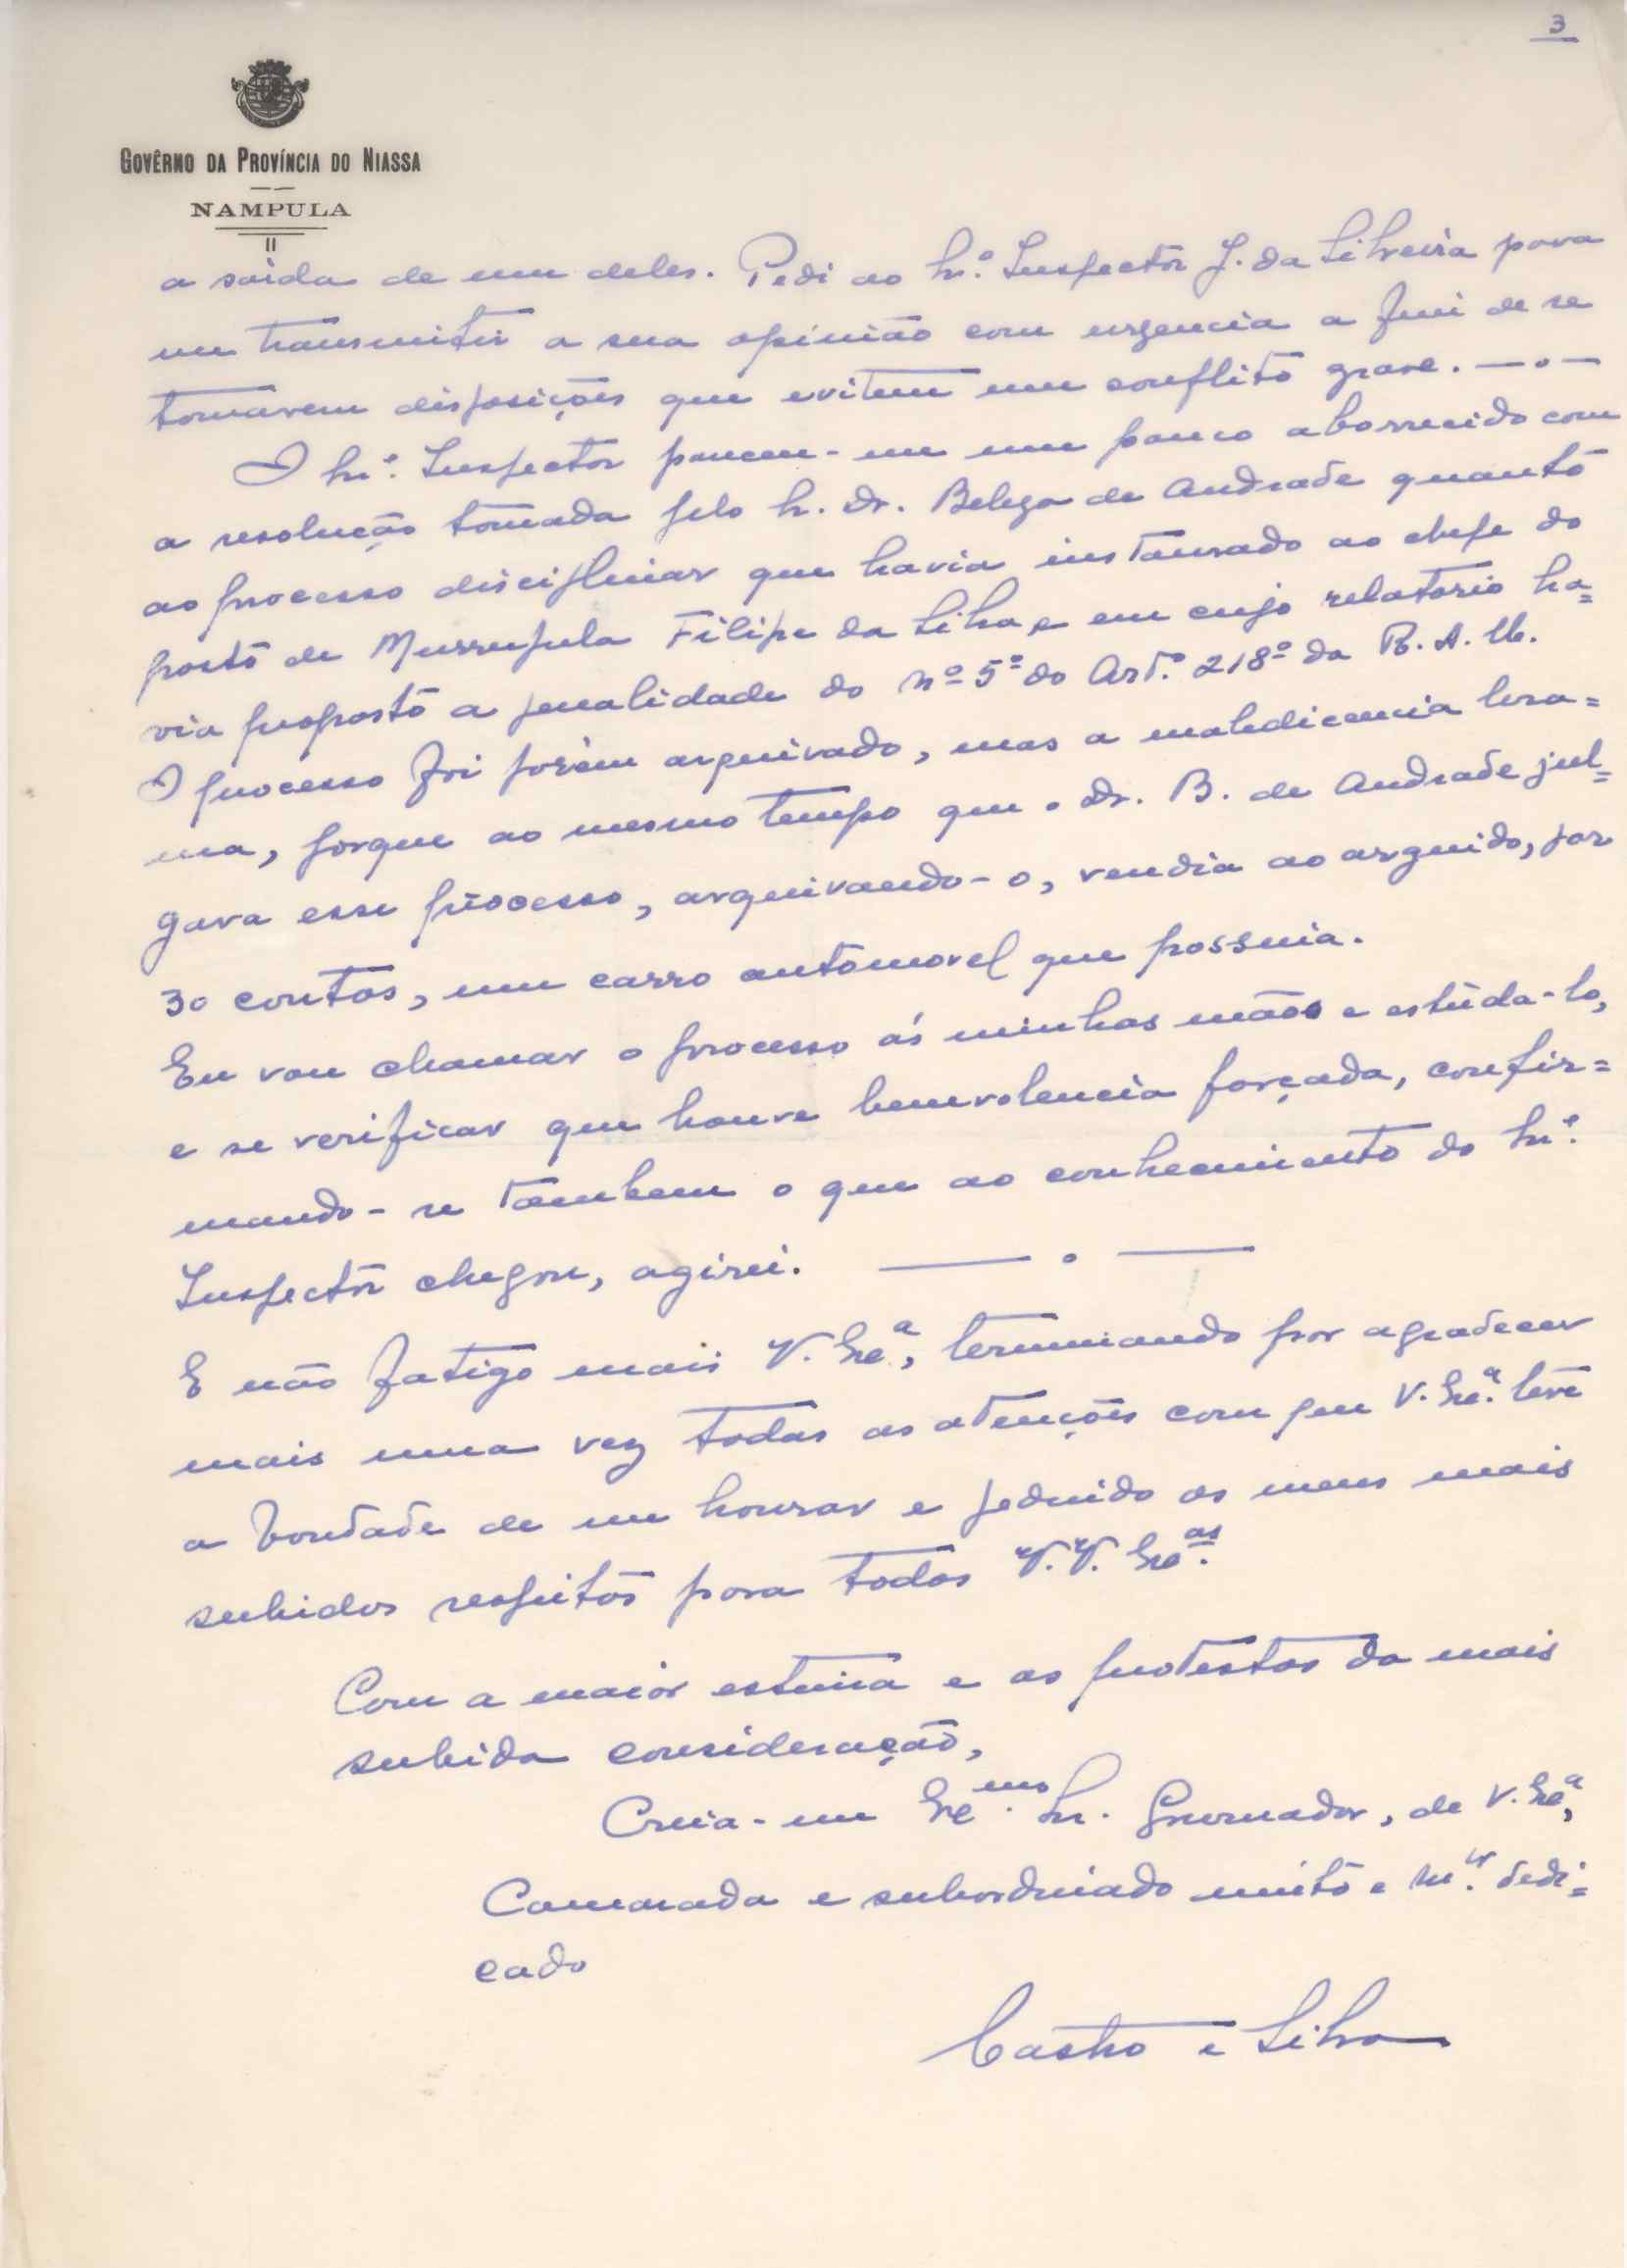 3
GOVÊRNO DA PROVÍNCIA DO NIASSA
NAMPULA
a saída de um deles. Pedi ao Snr.º Inspectôr J. da Silveira para
me transmitir a sua opinião com urgencia a fim de se
tomarem disposições que evitem um conflito grave. —o—
O Snr. Inspector pareceu-me um pouco aborrecido com
a resolução tomada pelo Sr. Dr. Beleza de Andrade quanto
ao processo disciplinar que havia instaurado ao chefe do
posto de Murrupula Filipe da Silva e em cujo relatorio ha=
via proposto a penalidade do nº 5º do Artº. 218º da R. A. U.
O processo foi porém arquivado, mas a maledicencia lavra=
va, porque ao mesmo tempo que o Dr. B. de Andrade jul=
gava esse processo, arquivando-o, vendia ao arguido, por
30 contos, um carro automovel que possuia.
Eu vou chamar o processo ás minhas mãos e estuda-lo,
e se verificar que houve benevolencia forçada, confir=
mando-se tambem o que ao conhecimento do Snr.
Inspectôr chegou, agirei. —— o ——
E não fatigo mais V. Exª, terminando por agradecer
mais uma vez todas as atenções com que V. Exª. teve
a bondade de me honrar e pedindo os meus mais
subidos respeitos para todos V. V. Exas.
Com a maior estima e os protestos da mais
subida consideração,
Creia-me Exmo. Sr. Governador, de V. Exª,
Camarada e subordinado muito e mtº. dedi=
cado
Castro e Silva